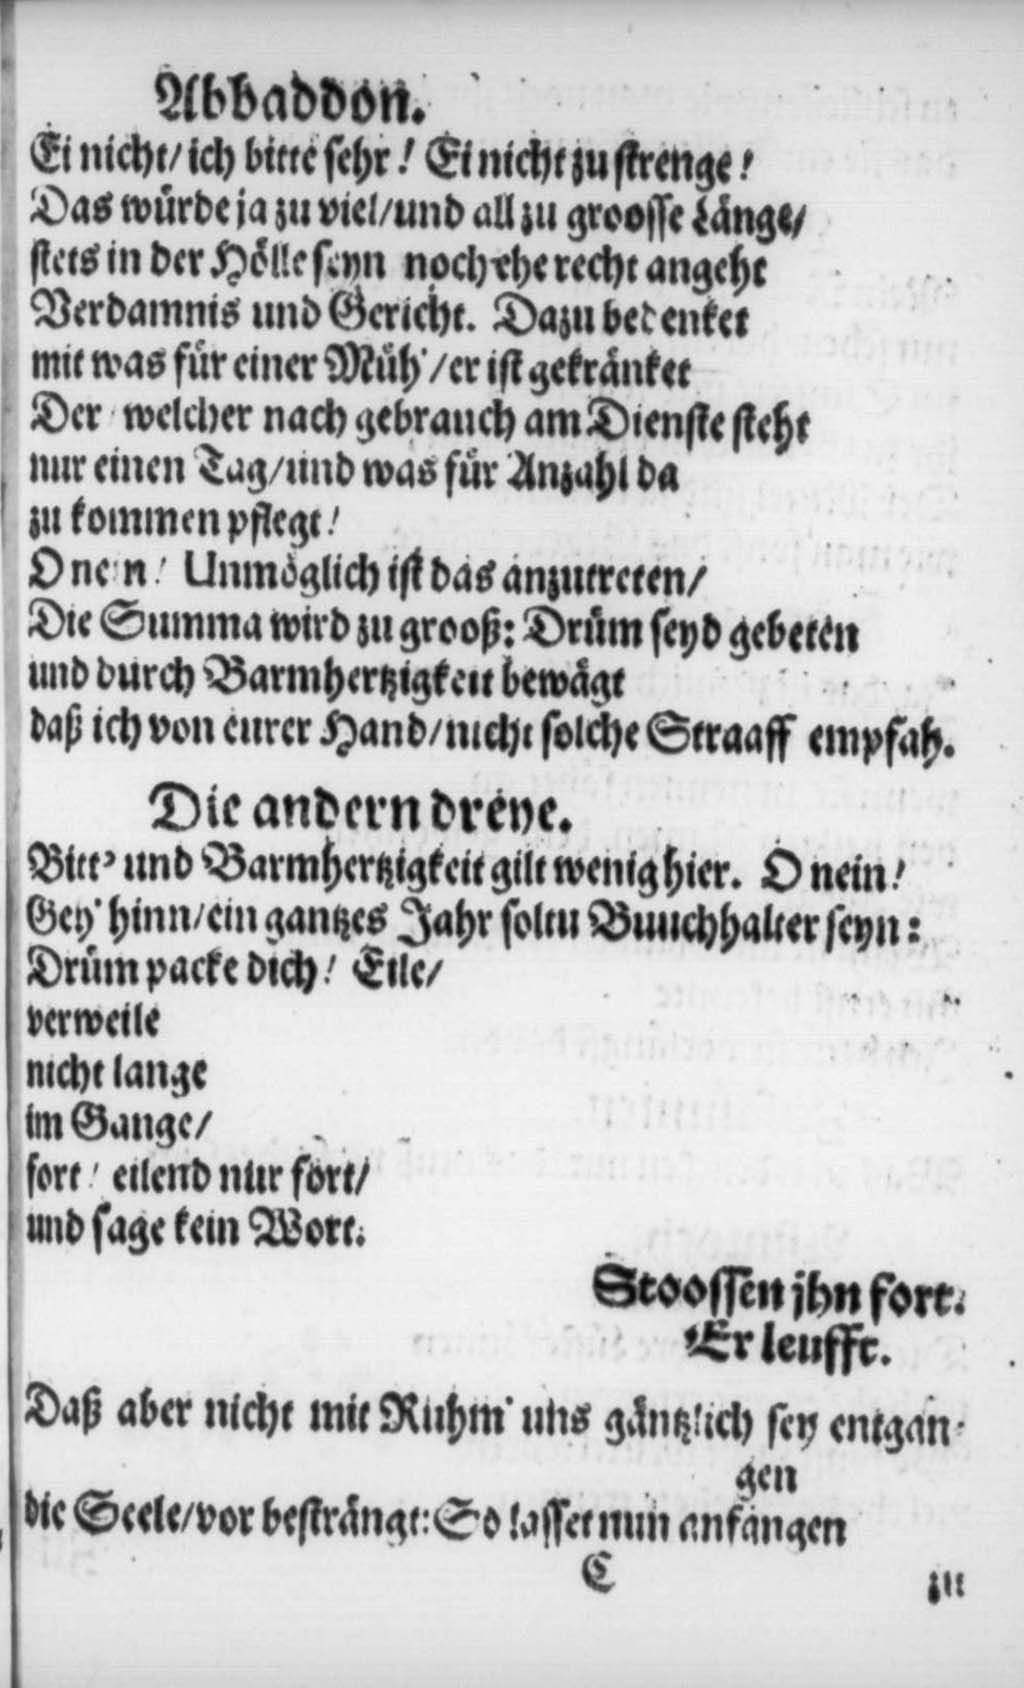 Abbaddon.
Ei nicht/ ich bitte sehr! Ei nicht zu strenge!
Das würde ja zu viel/ und all zu groosse Länge/
stets in der Hölle seyn noch ehe recht angeht
Verdamnis und Gericht. Dazu bedenket
mit was für einer Müh'/ er ist gekränket
Der/ welcher nach gebrauch am Dienste steht
nur einen Tag/ und was für Anzahl da
zu kommen pflegt!
O nein! Unmöglich ist das anzutreten/
Die Summa wird zu grooß: Drüm seyd gebeten
und durch Barmhertzigkeit bewägt
daß ich von eurer Hand/ nicht solche Straaff empfah.
Die andern dreye.
Bitt' und Barmhertzigkeit gilt wenig hier. O nein!
Gey' hinn/ ein gantzes Jahr soltu Buuchhalter seyn:
Drüm packe dich! Eile/
verweile
nicht lange
im Gange/
fort! eilend nur fort/
und sage kein Wort.
Stoossen jhn fort.
Er leufft.
Daß aber nicht mit Ruhm' uns gäntzlich sey entgan-
gen
die Seele/ vor besträngt: So lasset nun anfangen
C
zu